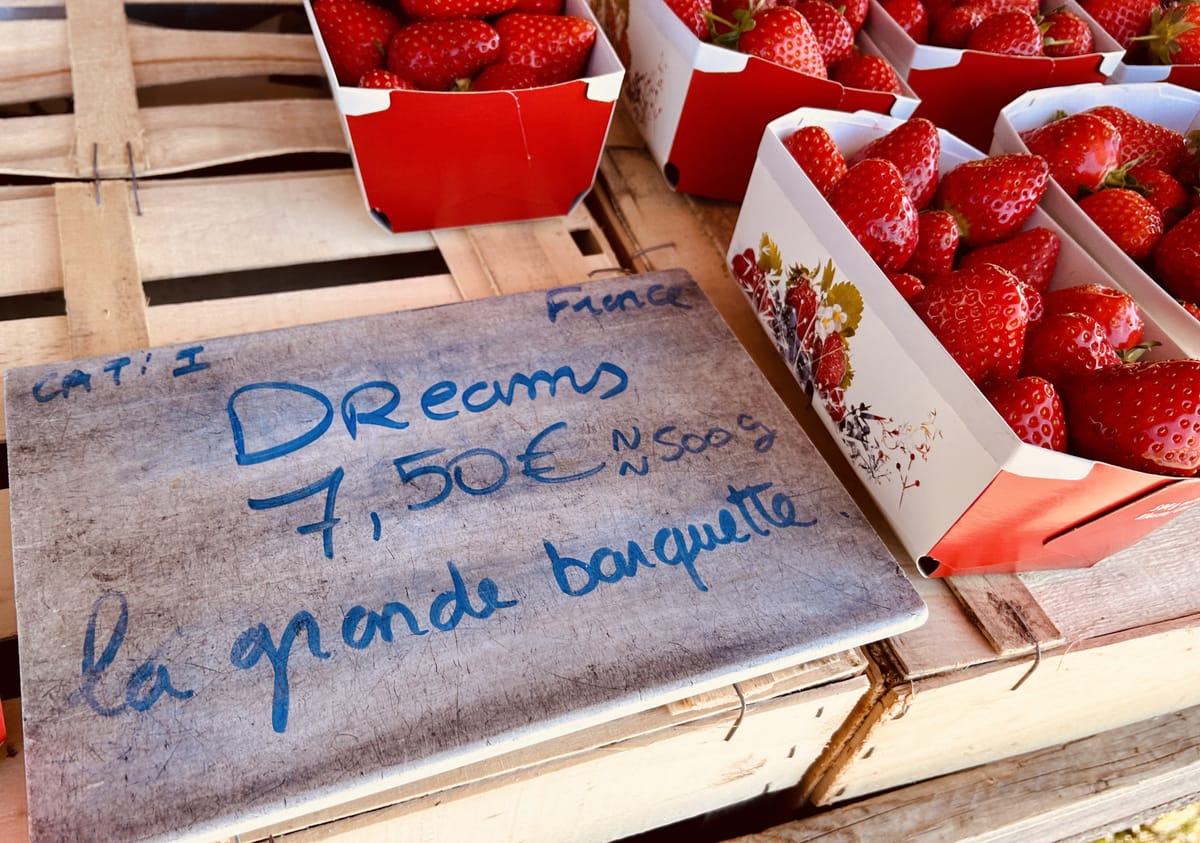 France
CAT: I
Dreams
7,50€ ≈ 500g
la grande barquette.